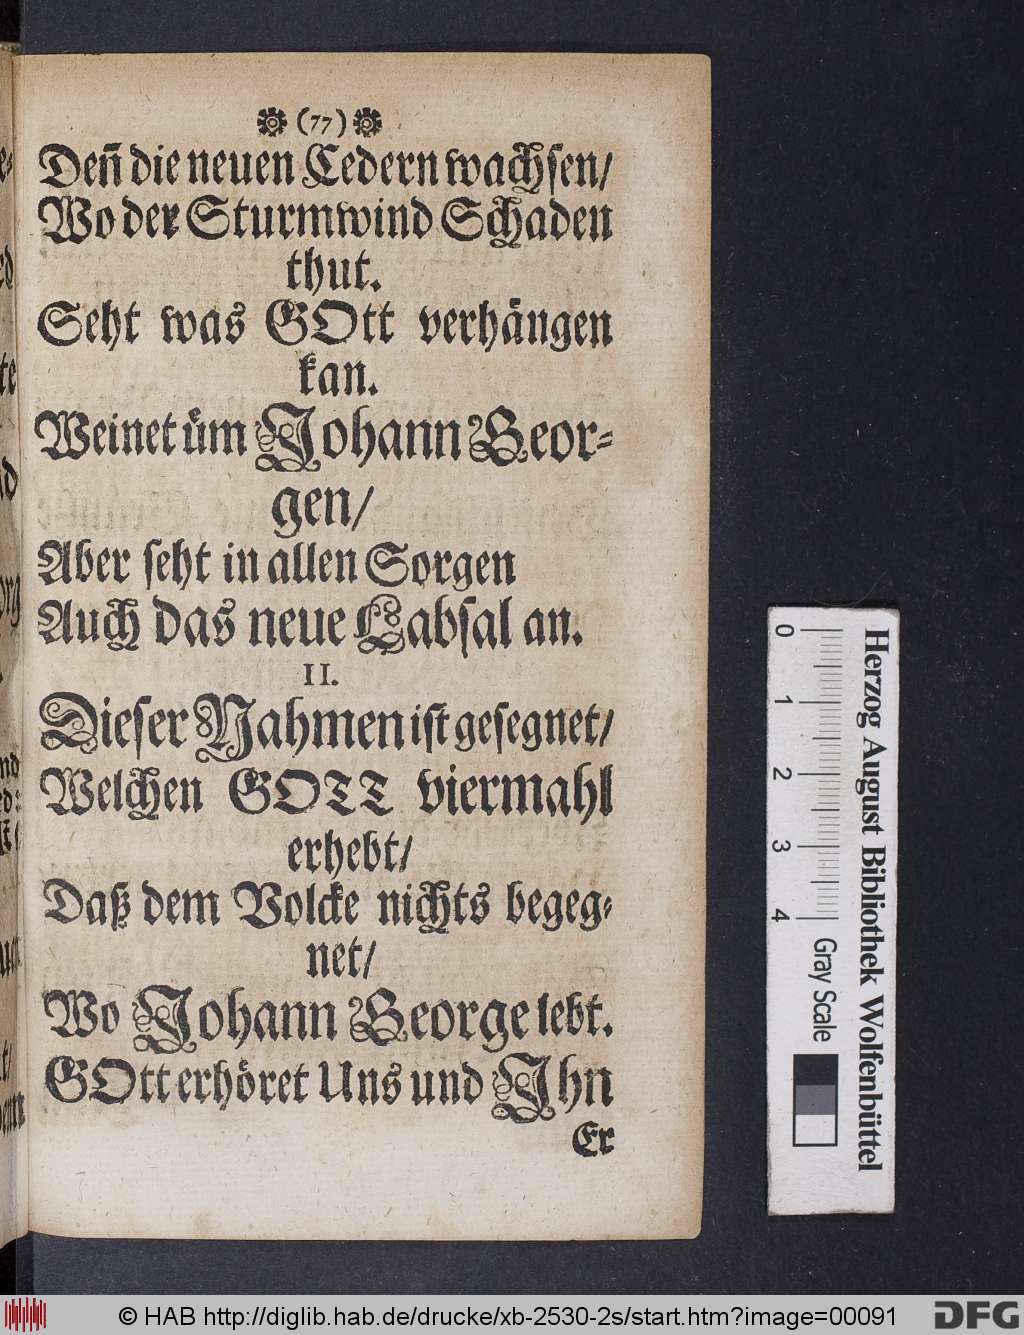 (77)
Deñ die neuen Cedern wachsen/
Wo der Sturmwind Schaden
thut.
Seht was GOtt verhängen
kan.
Weinet üm Johann Geor-
gen/
Aber seht in allen Sorgen
Auch das neue Labsal an.
II.
Dieser Nahmen ist gesegnet/
Welchen GOTT viermahl
erhebt/
Daß dem Volcke nichts begeg-
net/
Wo Johann George lebt.
GOtt erhöret Uns und Ihn
Er
0 1 2 3 4 Gray Scale
Herzog August Bibliothek Wolfenbüttel
© HAB http://diglib.hab.de/drucke/xb-2530-2s/start.htm?image=00091
DFG